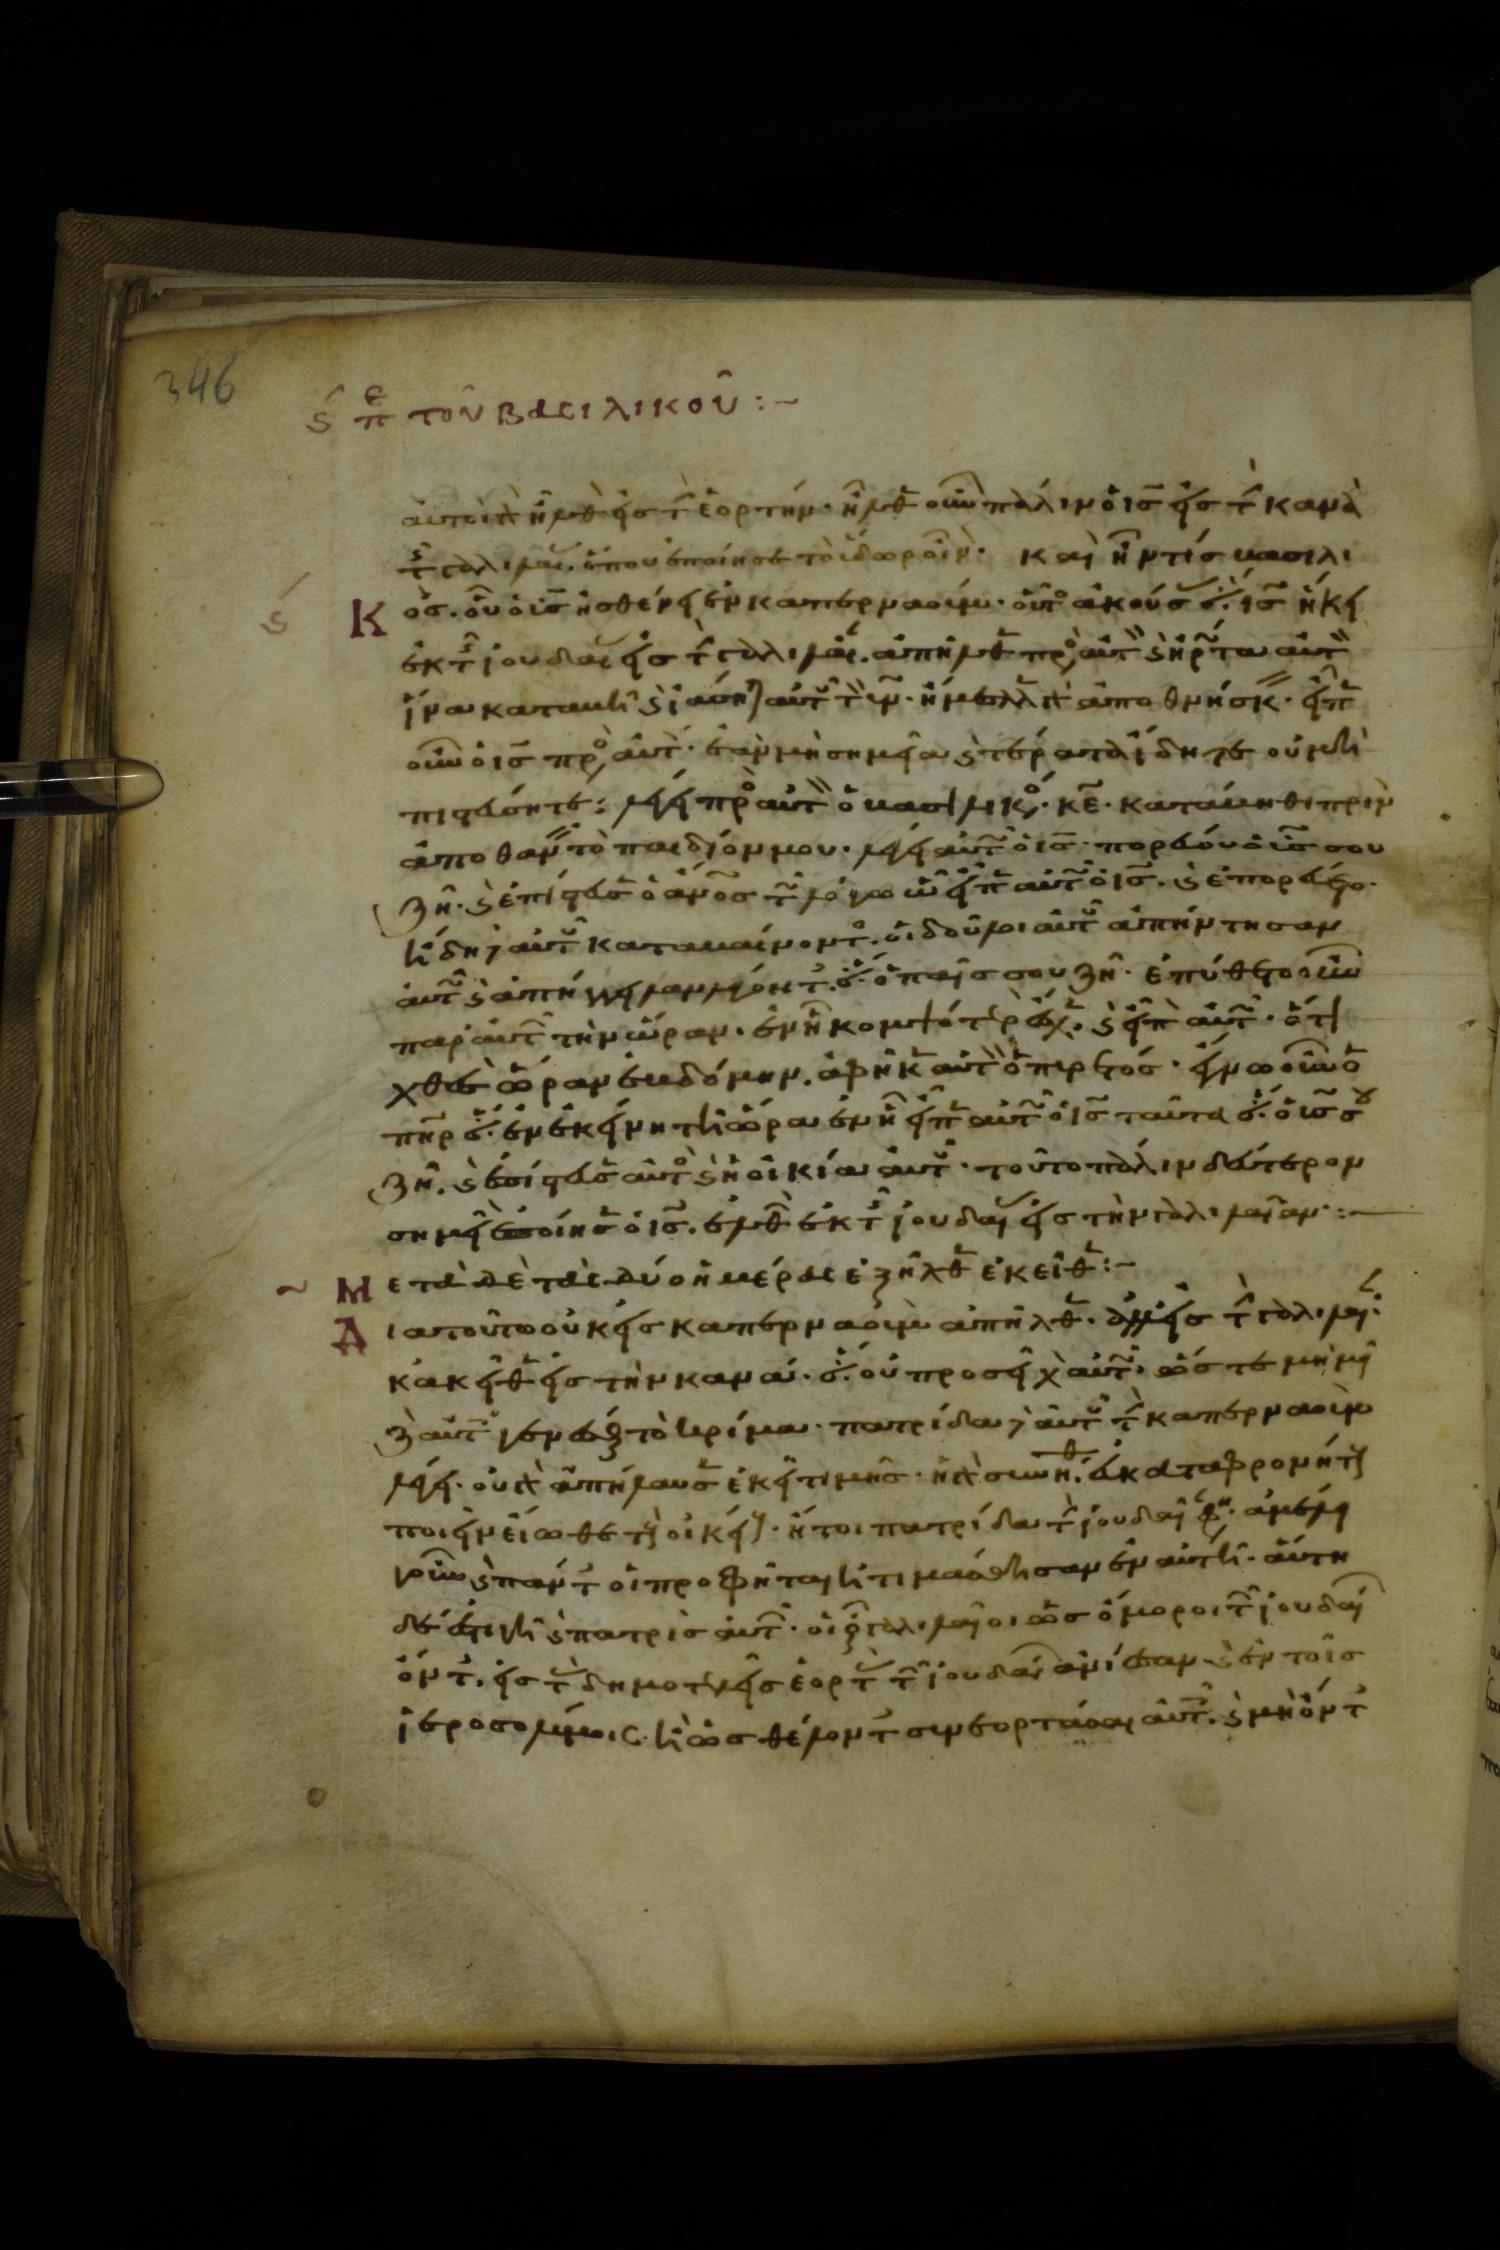 346
ϛ πε τοῦ βασιλικοῦ:~
αὐτοὶ γὰρ ἦλθον εἰς τὴν ἑορτήν· ἦλθεν οὖν πάλιν ὁ ις εἰς τὴν κανὰ
τῆς γαλιλαίας, ὅπου ἐποίησε τὸ ὕδωρ οἶνον· καὶ ἦν τις βασιλι
ϛ Κ ός, οὗ ὁ υἱὸς ἠσθένει ἐν καπερναούμ· οὗτος ἀκούσας ὅτι ις ἥκει
ἐκ τῆς ἰουδαίας εἰς τὴν γαλιλαίαν, ἀπῆλθε πρὸς αὐτὸν καὶ ἠρώτα αὐτὸν
ἵνα καταβῇ καὶ ἰάσηται αὐτοῦ τὸν υἱόν· ἤμελλε γὰρ ἀποθνήσκειν· εἶπεν
οὖν ὁ ις πρὸς αὐτόν· ἐὰν μὴ σημεῖα καὶ τέρατα ἴδητε οὐ μὴ
πιστεύσητε: λέγει πρὸς αὐτὸν ὁ βασιλικός· κε· κατάβηθι πρὶν
ἀποθανεῖν τὸ παιδίον μου· λέγει αὐτῷ ὁ ις· πορεύου ὁ υἱός σου
ζῆ· καὶ ἐπίστευσεν ὁ ανος τῷ λόγω ᾧ εἶπεν αὐτῷ ὁ ις· καὶ ἐπορεύετο·
ἤδη δὲ αὐτοῦ καταβαίνοντος, οἱ δοῦλοι αὐτοῦ ἀπήντησαν
αὐτῷ καὶ ἀπήγγειλαν λέγοντες ὅτι ὁ παῖς σου ζῆ· ἐπύθετο οὖν
παρ' αὐτῶν τὴν ὥραν· ἐν ἧ κομψότερον ἔσχεν· καὶ εἶπον αὐτῷ· ὅτι
χθὲς ὥραν ἑβδόμην, ἀφῆκεν αὐτὸν ὁ πυρετός· ἔγνω οὖν ὁ
πηρ ὅτι ἐν ἐκείνη τῆ ὥρα ἐν ἧ εἶπεν αὐτῷ ὁ ις ταῦτα ὅτι ὁ υἱός σου
ζῆ· καὶ ἐπίστευσεν αὐτὸς καὶ ἡ οἰκία αὐτοῦ· τοῦτο πάλιν δεύτερον
σημεῖον ἐποίησεν ὁ ις· ἐλθὼν ἐκ τῆς ἰουδαίας εἰς τὴν γαλιλαίαν:—
~ Μ ετὰ δὲ τὰς δύο ἡμέρας ἐξῆλθεν ἐκεῖθεν:~
Δ ιατοῦτο οὐκ εἰς καπερναοὺμ ἀπῆλθεν· ἀλλ' εἰς τὴν γαλιλαίαν·
κἀκεῖθεν εἰς τὴν κανά· ὅτι οὐ προσεῖχον αὐτῷ· ὥστε μὴ μεῖ
ζον αὐτοῖς γενέσθαι τὸ κρίμα· πατρίδα δὲ αὐτοῦ τὴν καπερναοὺμ
λέγει· οὐ γὰρ ἀπήλαυσεν ἐκεῖ τιμῆς· ἡ γὰρ συνήθεια εὐκαταφρονήτους
ποιεῖν εἴωθε τοὺς οἰκείους· ἤτοι πατρίδα τὴν ἰουδαίαν φησίν· ἀμέλει
γοῦν καὶ πάντες οἱ προφῆται ἠτιμάσθησαν ἐν αὐτῆ· αὕτη
δέ ἐστιν ἡ πατρὶς αὐτῶν· οἱ δὲ γαλιλαῖοι ὡς ὅμοροι τῶν ἰουδαίων
ὄντες, εἰς τὰς δημοτελεῖς ἑορτὰς τῶν ἰουδαίων ἀνίεσαν καὶ ἐν τοῖς
ἱεροσολύμοις· ἢ ὡς θέλοντες συνεορτάσαι αὐτοῖς καὶ μὴ ὄντες